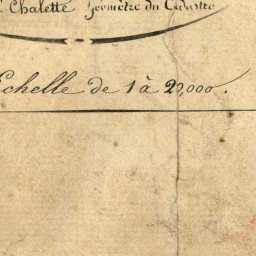 Chalette Géomètre du Cadastre
Echelle de 1 à 20,000.